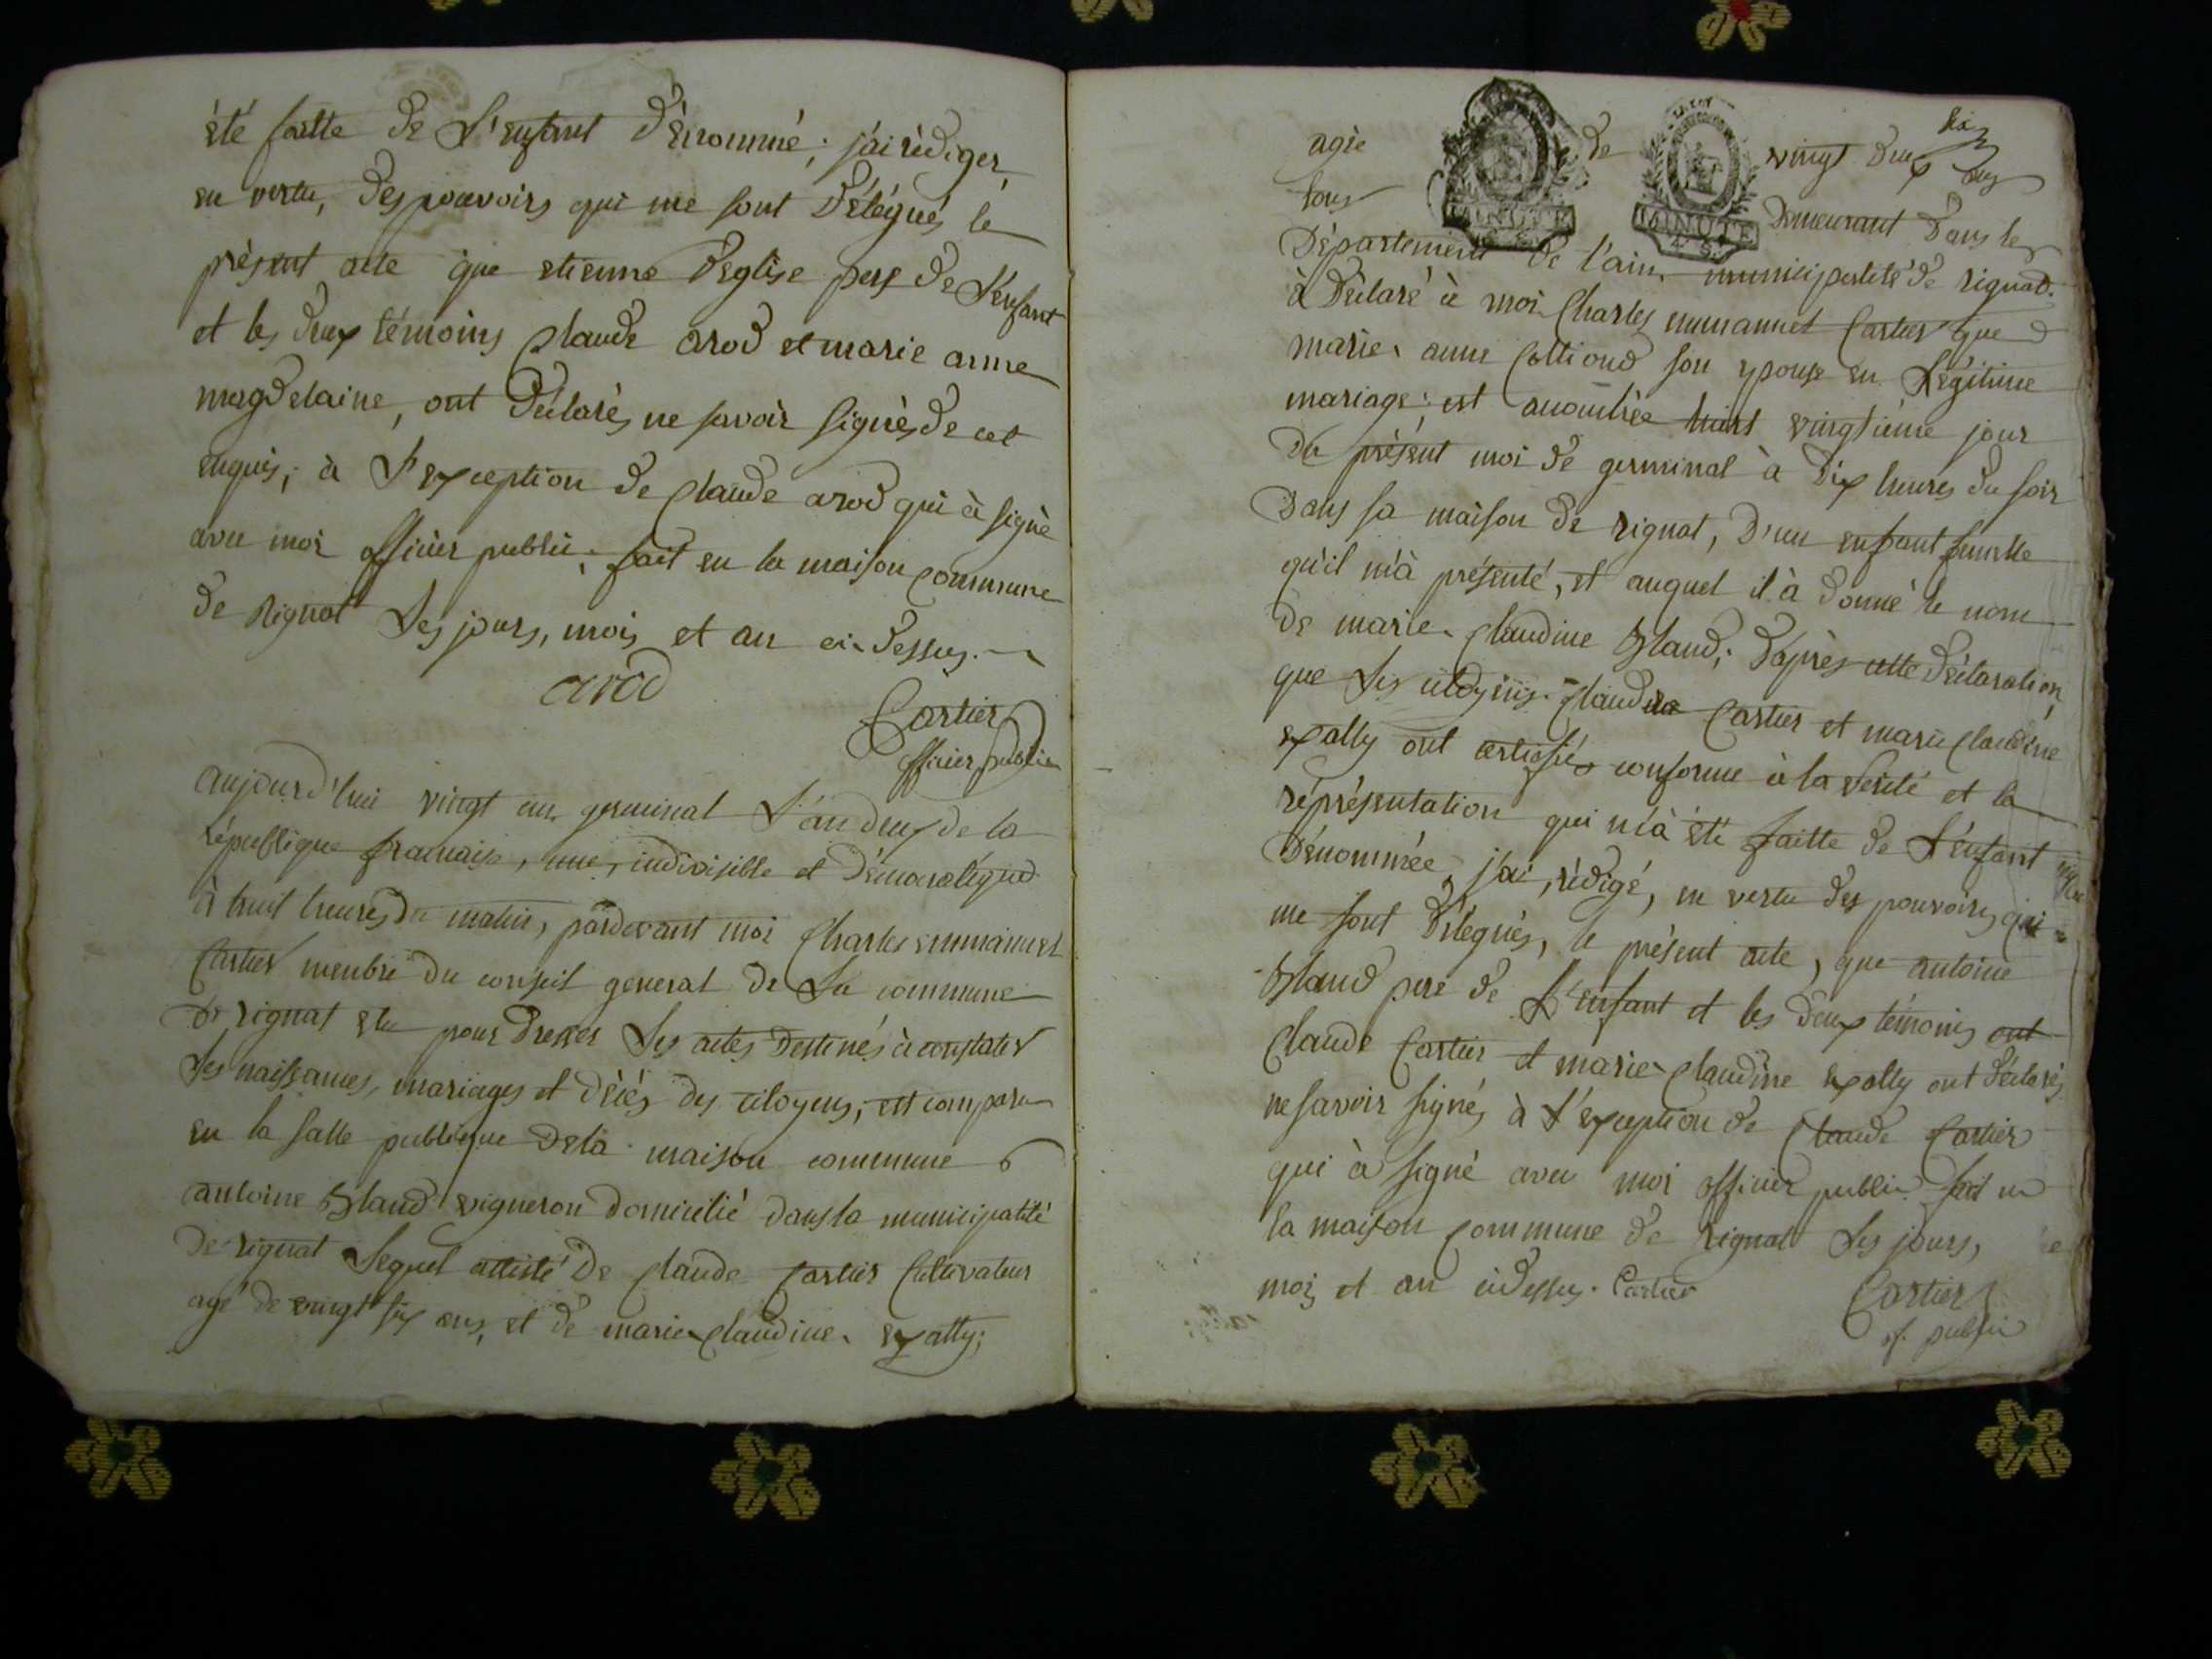 été faitte de L'enfant dénommé ; j'ai rédiger,
en vertu, des pouvoirs qui me sont délégués le
présent acte que etienne deglise pere de L'enfant
et les deux témoins Claude arod et marie anne
magdelaine, ont déclarés ne savoir signés de cet
enquis, à L'exception de Claude arod qui à signé
avec moi officier public ; fait en la maison commune
de Rignat Les jours, mois et an ci-dessus.
arod
Cartier
officier public
aujourd'hui vingt un germinal L'an deux de la
république française, une, indivisible et
à huit heures du matin, pardevant moi Charles emmanuel
Cartier membre du conseil general de La commune
de rignat elu pour dresser Les actes destinés à constater
Les naissances, mariages et décès des citoyens, est comparu
en la salle publique de la maison commune
antoine Bland vigneron domicilié dans la municipalité
de rignat Lequel attisté de Claude Cartier Cultivateur
agé de vingt six ans, et de marie Claudine expally ;
agée de vingt deux ans
six
tous demeurant dans le
Département de l'ain, municipalité de rignat.
MINUTE
MINUTE
4 S.
à déclaré à moi Charles emmanuel Cartier que
marie anne Cottioud son epouse en Légitime
mariage ; est accouchée vingtième jour
du présent moi de germinal à dix heures du soir
dans sa maison de rignat, d'un enfant femelle
qu'il m'à présenté, et auquel il à donné le nom
de marie Claudine Bland ; d'après cette déclaration,
que Les citoyens Claude Cartier et marie Claudine
expally ont certifiés conforme à la vérité et la
réprésentation qui m'à été faitte de L'enfant
dénommée, j'ai, rédigé, en vertu des pouvoirs qui
me sont délégués, le présent acte, que antoine
Bland pere de L'enfant et les deux témoins ont
Claude Cartier et marie Claudine expally ont déclarés
ne savoir signés à L'exception de Claude Cartier
qui à signé avec moi officier public fait en
la maison Commune de rignat Les jours,
mois et an cidessus. Cartier
Cartier
of. public